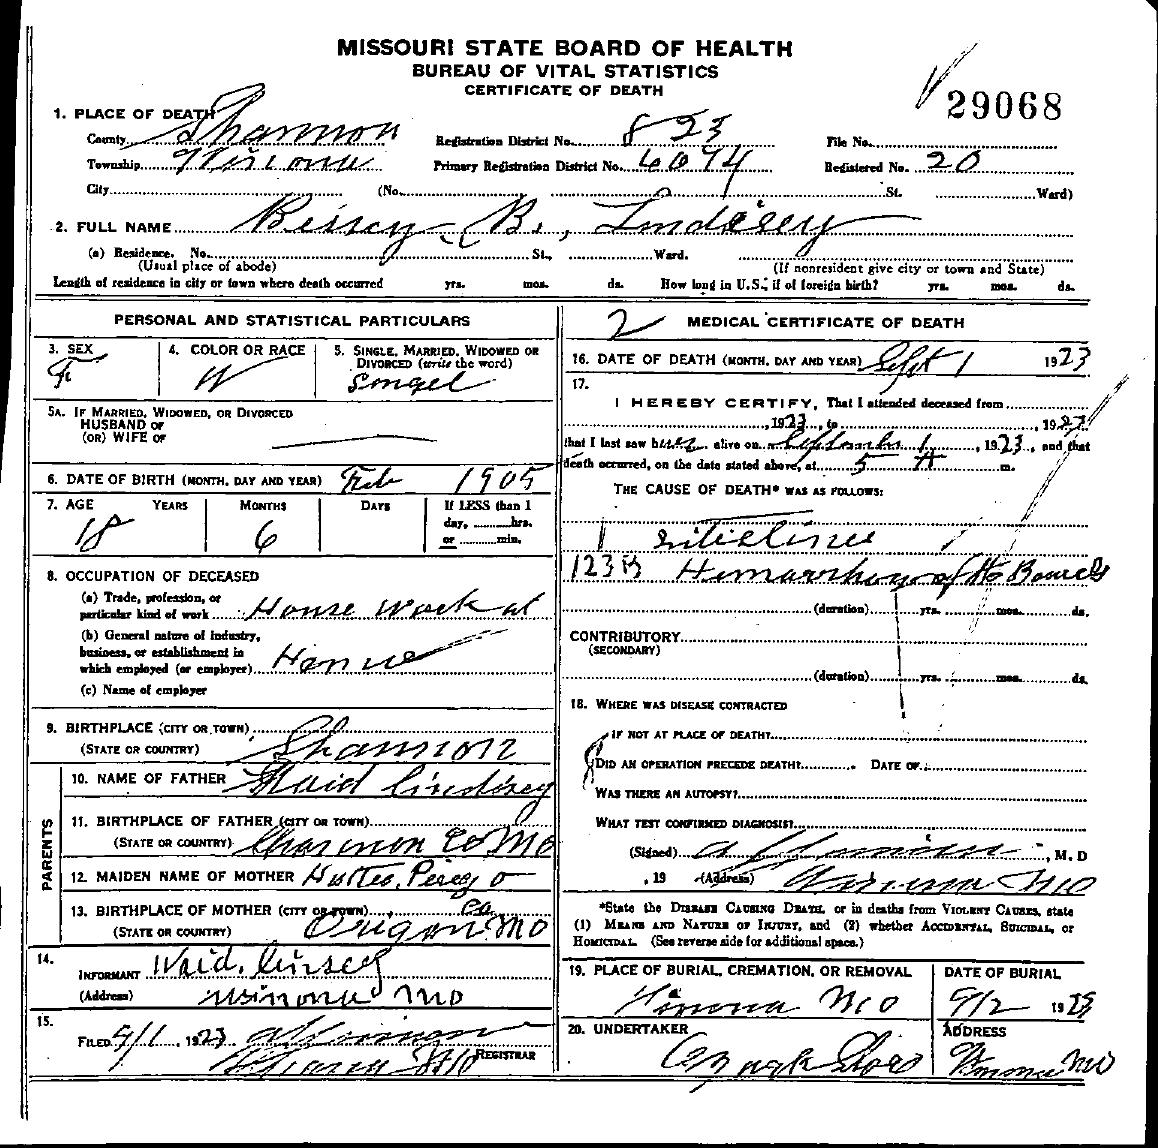 MISSOURI STATE BOARD OF HEALTH
BUREAU OF VITAL STATISTICS
CERTIFICATE OF DEATH
29068
1. PLACE OF DEATH
County Shannon Registration District No. 823 File No.
Township Winona Primary Registration District No. 6074 Registered No. 20
City (No. St. Ward)
2. FULL NAME B., Lindsey
(a) Residence. No. St., Ward.
(Usual place of abode) (If nonresident give city or town and State)
Length of residence in city or town where death occurred yrs. mos. ds. How long in U.S., if of foreign birth? yrs. mos. ds.
PERSONAL AND STATISTICAL PARTICULARS
3. SEX 4. COLOR OR RACE 5. SINGLE, MARRIED, WIDOWED OR
DIVORCED (write the word)
F W Singel
5A. IF MARRIED, WIDOWED, OR DIVORCED
HUSBAND OF
(OR) WIFE OF
6. DATE OF BIRTH (MONTH, DAY AND YEAR) Feb 1905
7. AGE YEARS MONTHS DAYS If LESS than 1
day, hrs.
or min.
18 6
8. OCCUPATION OF DECEASED
(a) Trade, profession, or
particular kind of work House work at
(b) General nature of industry,
business, or establishment in
which employed (or employer) Home
(c) Name of employer
9. BIRTHPLACE (CITY OR TOWN)
(STATE OR COUNTRY) Shannon
PARENTS
10. NAME OF FATHER Waid Lindsey
11. BIRTHPLACE OF FATHER (CITY OR TOWN)
(STATE OR COUNTRY) Shannon Co MO
12. MAIDEN NAME OF MOTHER
13. BIRTHPLACE OF MOTHER (CITY OR TOWN) Co
(STATE OR COUNTRY) Origon MO
14.
INFORMANT Waid. Linsey
(Address) Winona MO
15.
FILED 9/1, 1923
REGISTRAR
2 MEDICAL CERTIFICATE OF DEATH
16. DATE OF DEATH (MONTH, DAY AND YEAR) Sept 1 1923
17.
I HEREBY CERTIFY, That I attended deceased from
, 1923, to , 1923
that I last saw her alive on September 1, 1923, and that
death occurred, on the date stated above, at 5 A m.
THE CAUSE OF DEATH* WAS AS FOLLOWS:
123B Hemorrhage of the Bowels
(duration) yrs. mos. ds.
CONTRIBUTORY
(SECONDARY)
(duration) yrs. mos. ds.
18. WHERE WAS DISEASE CONTRACTED
IF NOT AT PLACE OF DEATH?
DID AN OPERATION PRECEDE DEATH? DATE OF
WAS THERE AN AUTOPSY?
WHAT TEST CONFIRMED DIAGNOSIS?
(Signed) , M. D
, 19 (Address) Winona MO
*State the DISEASE CAUSING DEATH, or in deaths from VIOLENT CAUSES, state
(1) MEANS AND NATURE OF INJURY, and (2) whether ACCIDENTAL, SUICIDAL, or
HOMICIDAL. (See reverse side for additional space.)
19. PLACE OF BURIAL, CREMATION, OR REMOVAL DATE OF BURIAL
Winona MO 9/2 1923
20. UNDERTAKER ADDRESS
Winona MO